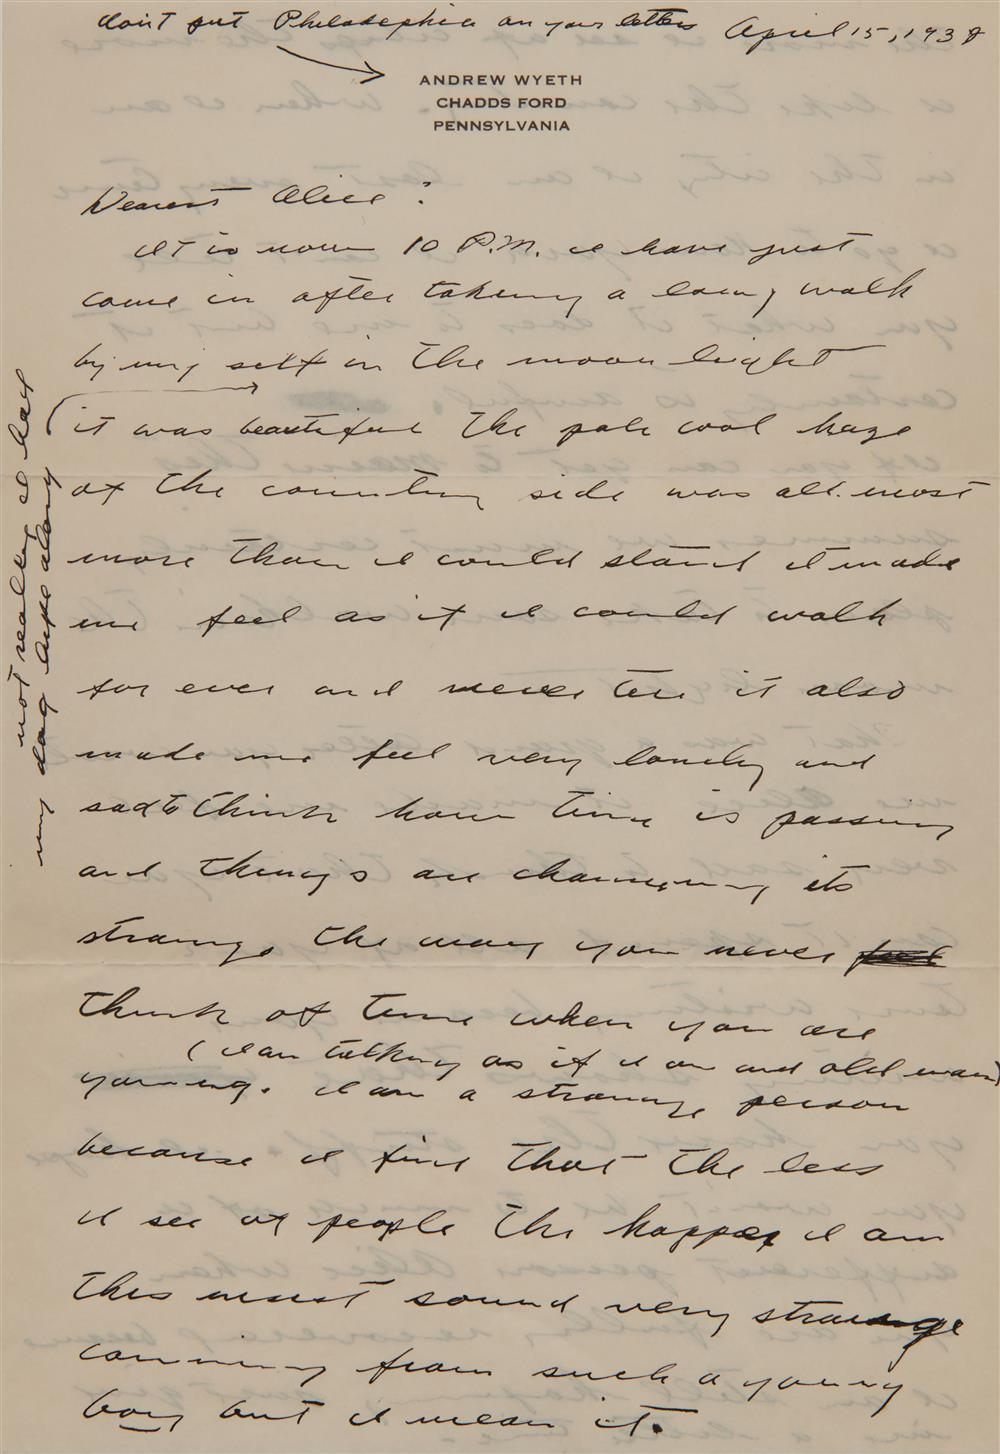 don't put Philadelphia on your letters
April 15, 1938
ANDREW WYETH
CHADDS FORD
PENNSYLVANIA
Dearest Alice:
It is now 10 P.M. I have just
come in after takeing a long walk
by my self in the moon light
not really I had
my dog life along
it was beautiful the pale cool haze
of the country side was all most
more than I could stand it made
me feel as if I could walk
for ever and never tire it also
made me feel very lonely and
sad to think how time is passing
and things are changeing its
strange the way you never
think of time when you are
(I am talking as if I am and old man)
young. I am a strange person
because I find that the less
I see of people the happer I am
this must sound very strange
comming from such a young
boy but I mean it.